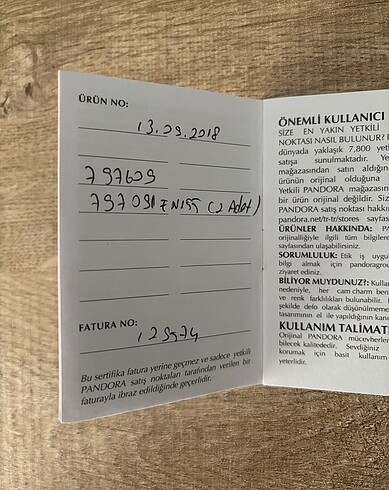 ÜRÜN NO:
13.09.2018
797609
797091EN155 (2 Adet)
FATURA NO:
129574
Bu sertifika fatura yerine geçmez ve sadece yetkili
PANDORA satış noktaları tarafından verilen bir
faturayla ibraz edildiğinde geçerlidir.
ÖNEMLİ KULLANICI
SİZE EN YAKIN YETKİLİ
NOKTASI NASIL BULUNUR?
dünyada yaklaşık 7,800
satışa sunulmaktadır.
mağazasından satın aldığın
ürünün orijinal olduğuna
Yetkili PANDORA mağazasın
bir ürün orijinal değildir. Siz
PANDORA satış noktası hakkın
pandora.net/tr-tr/stores sayfas
ÜRÜNLER HAKKINDA:
orijinalliğiyle ilgili tüm bilgilere
sayfasından ulaşabilirsiniz.
SORUMLULUK: Etik iş uygu
bilgi almak için pandoragro
ziyaret ediniz.
BİLİYOR MUYDUNUZ?: Kulla
nedeniyle, her cam charm ben
ve renk farklılıkları bulunabilir.
şekilde defo olarak düşünülmeme
tasarımının el ile yapıldığının kanı
KULLANIM TALİMAT
Orijinal PANDORA mücevherler
bilecek kalitededir. Sevdiğiniz
korumak için basit kullanım
yeterlidir.